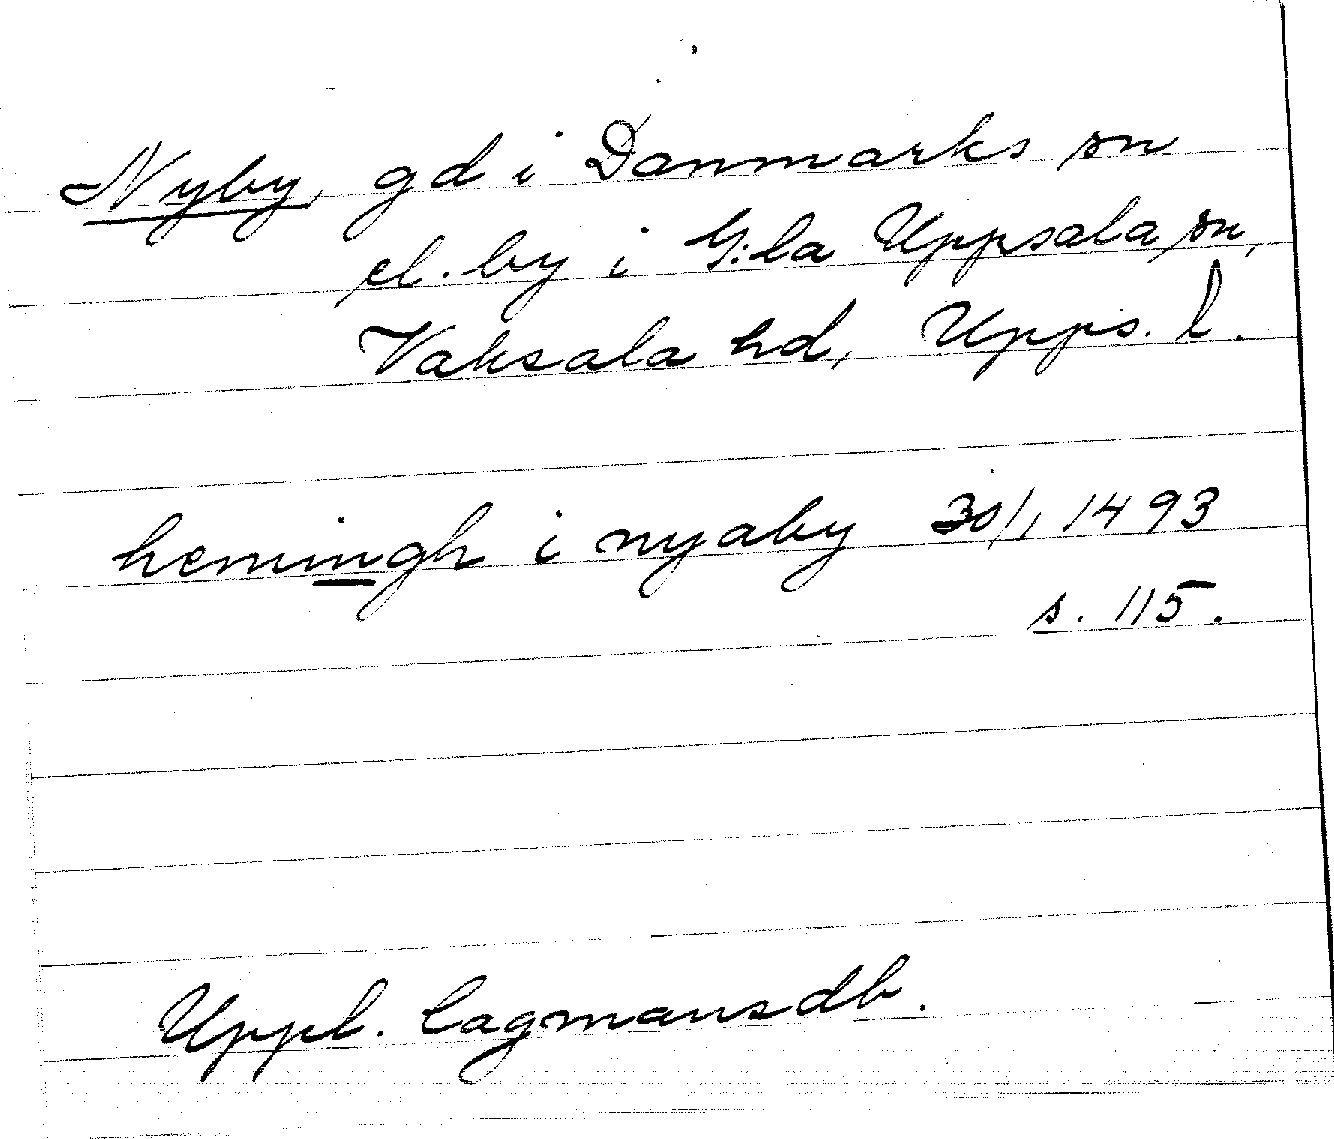 Nyby, gd i Danmarks sn
el. by i G:la Uppsala sn,
Vaksala hd, Upps. l.
hemingh i nyaby 30/1 1493
s. 115.
Uppl. Lagmansdb.